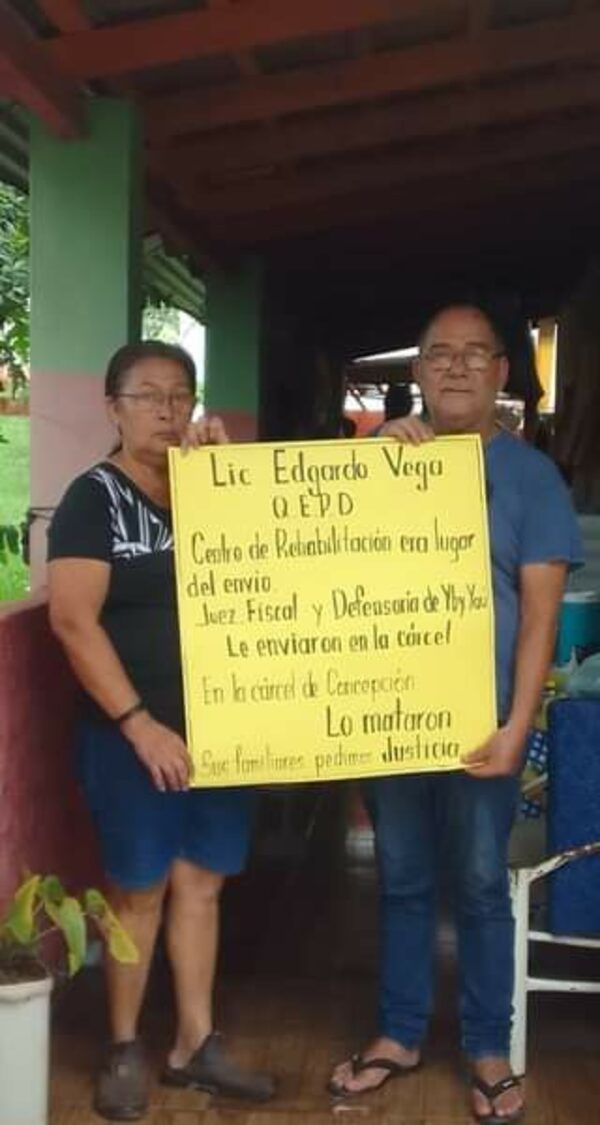 Lic Edgardo Vega
Q E P D
Centro de Rehabilitación era lugar
del envio
Juez Fiscal y Defensoria de Yby Yau
Le enviaron en la cárcel
En la cárcel de Concepción
Lo mataron
Sus familiares pedimos Justicia